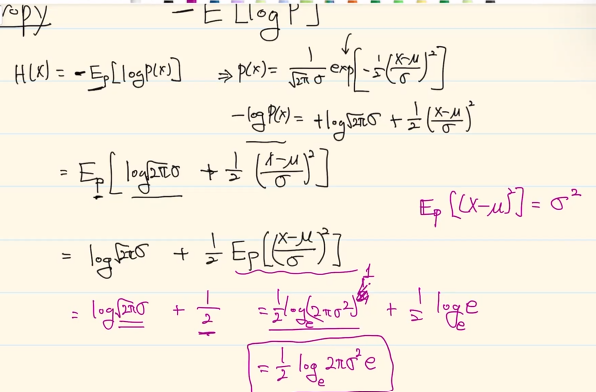 ropy − E [log P]
H(X) = − E_p[log p(x)] ⇒ p(x) = 1/(√2π σ) exp[−1/2((x−μ)/σ)²]
−log p(x) = +log√2π σ + 1/2 ((x−μ)/σ)²
= E_p[log√2π σ + 1/2 ((x−μ)/σ)²]
E_p[(x−μ)²] = σ²
= log√2π σ + 1/2 E_p[((x−μ)/σ)²]
= log√2π σ + 1/2 = 1/2 log_e(2πσ²)^1 + 1/2 log_e e
= 1/2 log_e 2πσ² e